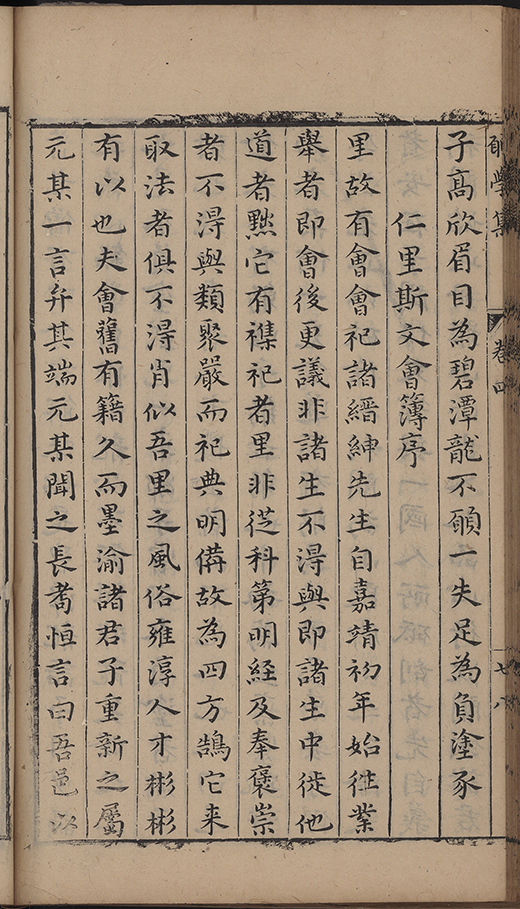 學集 卷四
子髙欣眉目為碧潭龍不願一失足為負塗豕
仁里斯文會簿序
里故有會會祀諸縉紳先生自嘉靖初年始徃業
舉者即會後更議非諸生不得與即諸生中徙他
道者黜它有襍祀者里非從科第明經及奉褒崇
者不得與類聚嚴而祀典明備故為四方鵠它来
取法者俱不得肖似吾里之風俗雍淳人才彬彬
有以也夫會舊有籍久而墨渝諸君子重新之屬
元某一言弁其端元某聞之長耆恒言曰吾邑以